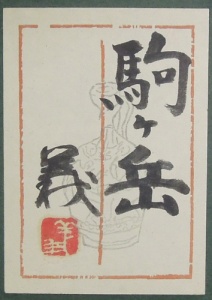 駒ヶ岳
義